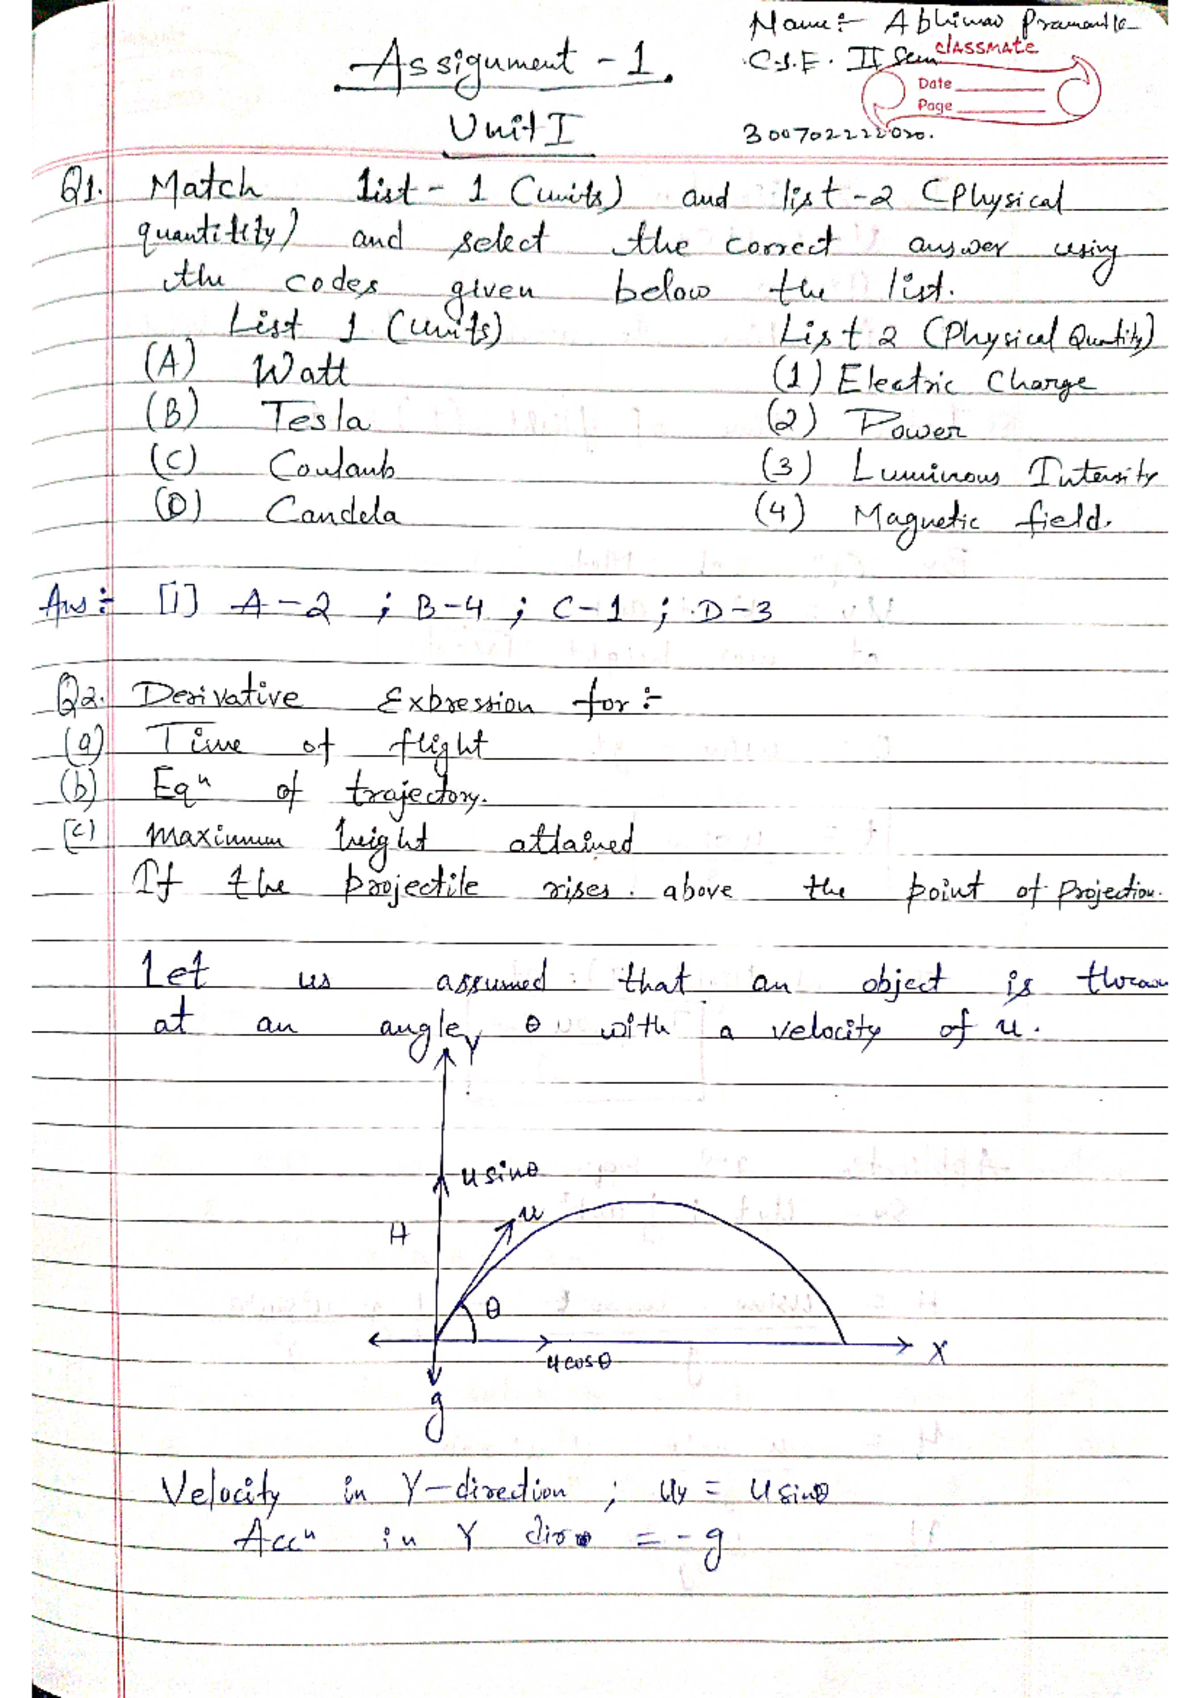 Name:- Abhinav Pramanik
Assignment - 1.
C.S.E. II Sem
classmate
Date
Page
Unit I
300702222020.
Q1. Match list - 1 (units) and list - 2 (Physical
quantitity) and select the correct answer using
the codes given below the list.
List 1 (units) List 2 (Physical Quantity)
(A) Watt (1) Electric Charge
(B) Tesla (2) Power
(C) Coulamb (3) Luminous Intensity
(D) Candela (4) Magnetic field.
Ans:- [i] A-2 ; B-4 ; C-1 ; D-3
Q2. Derivative Expression for:-
(a) Time of flight
(b) Eqⁿ of trajectory.
(c) maximum height attained
If the projectile rises above the point of projection.
Let us assumed that an object is thrown
at an angle θ with a velocity of u.
Y
u sinθ
u
H
θ
u cosθ
X
g
Velocity in Y-direction ; uy = u sinθ
Accⁿ in Y dir. = -g